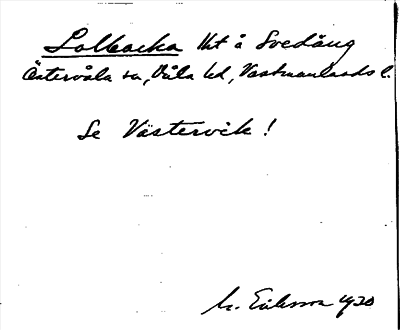 Solbacka lht å Svedäng
Östervåla sn, Våla hd, Västmanlands l.
Se Västervik!
M. Eriksson 1920